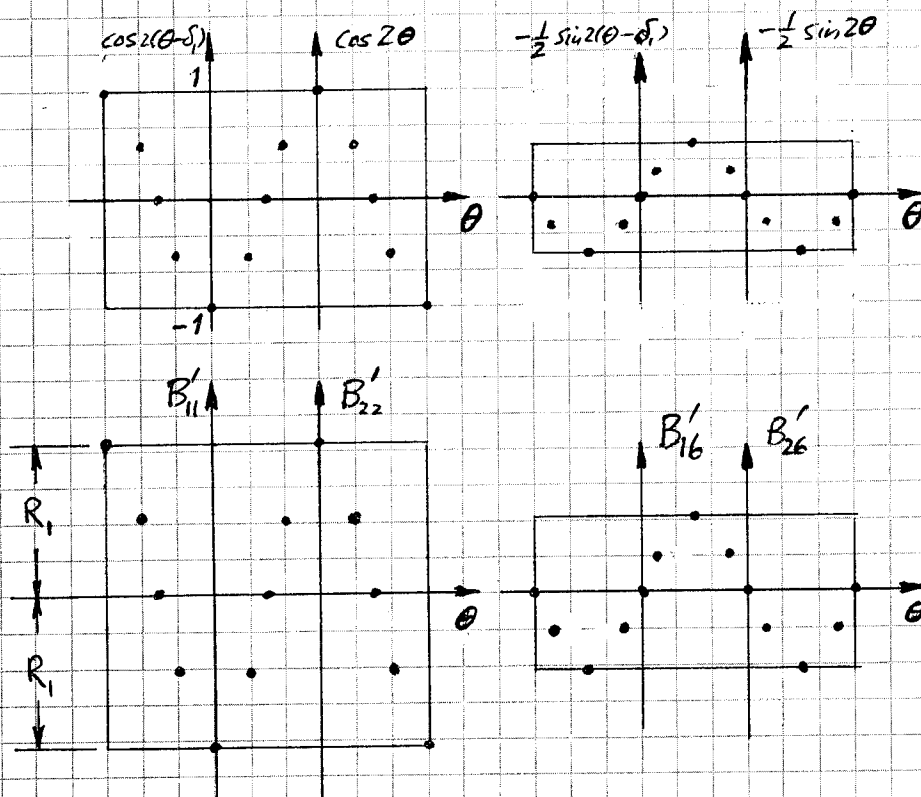 cos2(θ-δ₁) cos2θ
1
θ
-1
-½ sin2(θ-δ₁) -½ sin2θ
θ
B₁₁′ B₂₂′
R₁
R₁
θ
B₁₆′ B₂₆′
θ